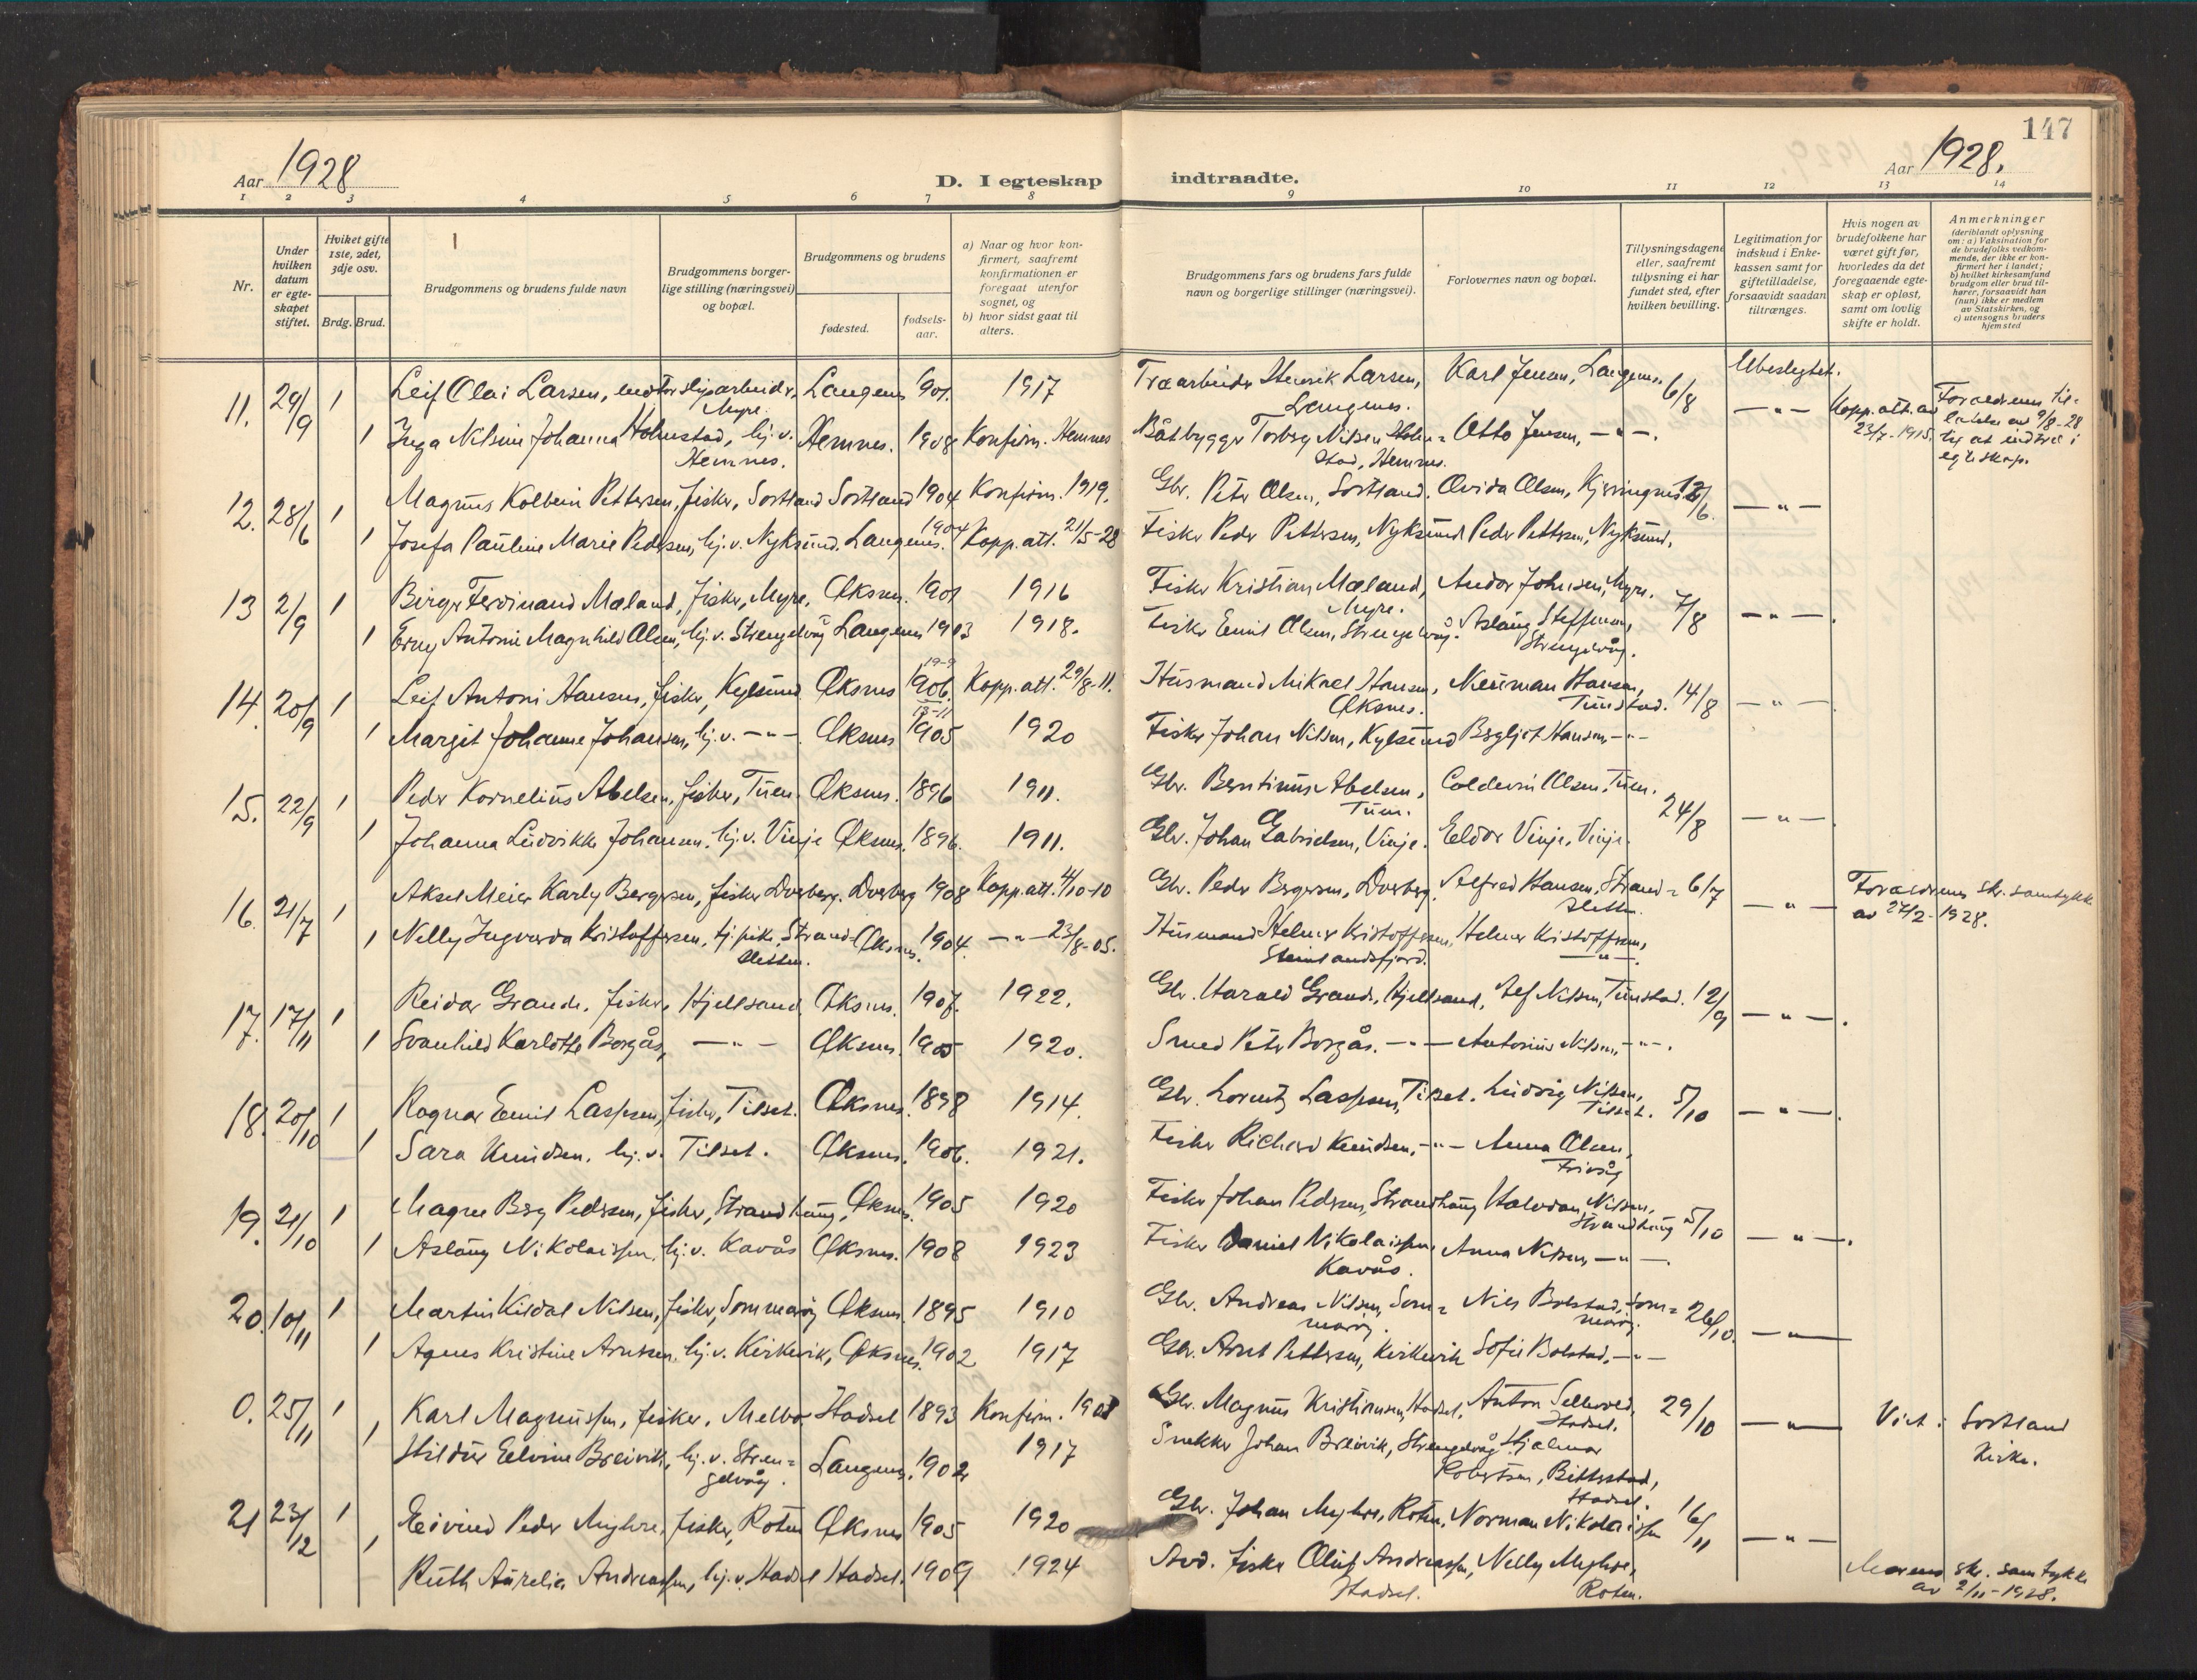 147
Aar 1928
D. I egteskap indtraadte.
Aar 1928.
1 2 3 4 5 6 7 8 9 10 11 12 13 14
Nr.
Under hvilken datum er egteskapet stiftet.
Hviket gifte 1ste, 2det, 3dje osv.
Brdg. Brud.
Brudgommens og brudens fulde navn
Brudgommens borgerlige stilling (næringsvei) og bopæl.
Brudgommens og brudens
fødested.
fødselsaar.
a) Naar og hvor konfirmert, saafremt konfirmationen er foregaat utenfor sognet, og
b) hvor sidst gaat til alters.
Brudgommens fars og brudens fars fulde navn og borgerlige stillinger (næringsvei).
Forlovernes navn og bopæl.
Tillysningsdagene eller, saafremt tillysning ei har fundet sted, efter hvilken bevilling.
Legitimation for indskud i Enkekassen samt for giftetilladelse, forsaavidt saadan tiltrænges.
Hvis nogen av brudefolkene har været gift før, hvorledes da det foregaaende egteskap er opløst, samt om lovlig skifte er holdt.
Anmerkninger (deriblandt oplysning om: a) Vaksination for de brudefolks vedkommende, der ikke er konfirmert her i landet; b) hvilket kirkesamfund brudgom eller brud tilhører, forsaavidt han (hun) ikke er medlem av Statskirken, og c) utensogns bruders hjemsted
11. 29/9 1 Leif Olai Larsen, Myre. Langenes 1901. 1917 Træarbeider Henrik Larsen, Langenes. Karl Jensen, Langenes. 6/8 Ubeslegtet.
1 Inga Nilsine Johanna Holmstad, hj. v. Hemnes. Hemnes. 1908 Konfirm. Hemnes Båtbygger Torberg Nilsen Holmstad, Hemnes. Otto Jensen, — " —. — " — Kopp. att. av 23/7-1915. Forældrenes tilladelse av 9/8-28 til at indtræ i egteskap.
12. 28/6 1 Magnus Kolbein Pettersen, fisker, Sortland Sortland 1904 Konfirm. 1919. Gbr. Peter Olsen, Sortland. Ovida Olsen, Kjerringnes 12/6. — " —
1 Josefa Pauline Marie Pedersen, hj. v. Nyksund. Langenes. 1904 Kopp. att. 21/5-28 Fisker Peder Pettersen, Nyksund Peder Pettersen, Nyksund.
13 2/9 1 Birger Ferdinand Mæland, fisker, Myre. Øksnes. 1901 1916 Fisker Kristian Mæland, Myre. Andor Johnsen, Myre. 7/8 — " —.
1 Erny Antonie Magnhild Olsen, hj. v. Strengelvåg Langenes 1903 1918. Fisker Emil Olsen, Strengelvåg. Aslaug Steffensen, Strengelvåg.
14. 20/9 1 Leif Antoni Hansen, fisker, Kylsund Øksnes 19-9 1906. Kopp. att. 29/8-11. Husmand Mikael Hansen, Øksnes. Neuman Hansen, Tunstad. 14/8 — " —.
1 Margit Johanne Johansen, hj. v. — " — Øksnes 13-11 1905 1920 Fisker Johan Nilsen, Kylsund Bergljot Hansen — " —
15. 22/9 1 Peder Kornelius Abelsen, fisker, Tuen. Øksnes. 1896 1911. Gbr. Berntinus Abelsen, Tuen. Olsen, Tuen. 24/8 — " —.
1 Johanna Ludvikke Johansen. hj. v. Vinje Øksnes. 1896. 1911. Gbr. Johan Gabrielsen, Vinje. Eldor Vinje, Vinje.
16. 21/7 1 Aksel Meier Karly Bergersen, fisker Dverberg. Dverberg 1908 Kopp. att. 4/10-10 Gbr. Peder Bergersen, Dverberg. Alfred Hansen, Strandsletten. 6/7 — " — Forældrenes skr. samtykke av 27/2-1928.
1 Nelly Ingvarda Kristoffersen, tj. pike, Strandsletten. Øksnes. 1904. — " — 23/8-05. Husmand Helmer Kristoffersen, Steinlandsfjord. Helmer Kristoffersen, — " —.
17. 17/11 1 Reidar Grande. fisker, Hjellsand. Øksnes. 1907. 1922. Gbr. Harald Grande, Hjellsand, Alf Nilsen, Tunstad. 12/9 — " —.
1 Svanhild Karlotte Borgås, — " — Øksnes. 1905 1920. Smed Peter Borgås. — " — Antonius Nilsen, — " —.
18. 20/10 1 Ragnar Emil Lassesen, fisker, Tilset. Øksnes. 1898 1914. Gbr. Lorentz Lassesen, Tilset. Ludvig Nilsen, Tilset. 5/10 — " —.
1 Sara Knudsen. hj. v. Tilset. Øksnes. 1906. 1921. Fisker Richard Knudsen, — " — Anna Olsen,
19. 21/10 1 Magne Berg Pedersen, fisker, Strandhaug, Øksnes. 1905 1920 Fisker Johan Pedersen, Strandhaug Halvdan Nilsen, Strandhaug 5/10 — " —.
1 Aslaug Nikolaissen. hj. v. Kavås Øksnes. 1908 1923 Fisker Daniel Nikolaissen, Kavås. Anna Nilsen, — " —.
20. 10/11 1 Martin Kildal Nilsen, fisker, Sommarøy Øksnes. 1895 1910 Gbr. Andreas Nilsen, Sommarøy. Nils Bolstad, Sommarøy. 26/10. — " —
1 Agnes Kristine Arntsen. hj. v. Kirkevik, Øksnes. 1902 1917 Gbr. Arnt Pettersen, Kirkevik Sofie Bolstad, — " —
0. 25/11 1 Karl Magnussen, fisker. Melbo Hadsel 1893 Konfirm. 1908 Gbr. Magnus Kristiansen, Hadsel. Anton Hadsel. 29/10 — " — Viet i Sortland Kirke.
1 Hildur Elvine Breivik, hj. v. Strengelvåg. Langenes. 1902 1917 Snekker Johan Breivik, Strengelvåg Hjalmar Robertsen, Bitterstad, Hadsel.
21 23/12 1 Eivind Peder Myhre, fisker, Roten Øksnes 1905 1920 Gbr. Johan Myhre, Roten, Norman Nikolaissen 16/11 — " —
1 Ruth Aurelia Andreassen, hj. v. Hadsel Hadsel. 1909 1924 Avd. fisker Oluf Andreassen, Hadsel. Nelly Myhre, Roten. Morens skr. samtykke av 2/11-1928.